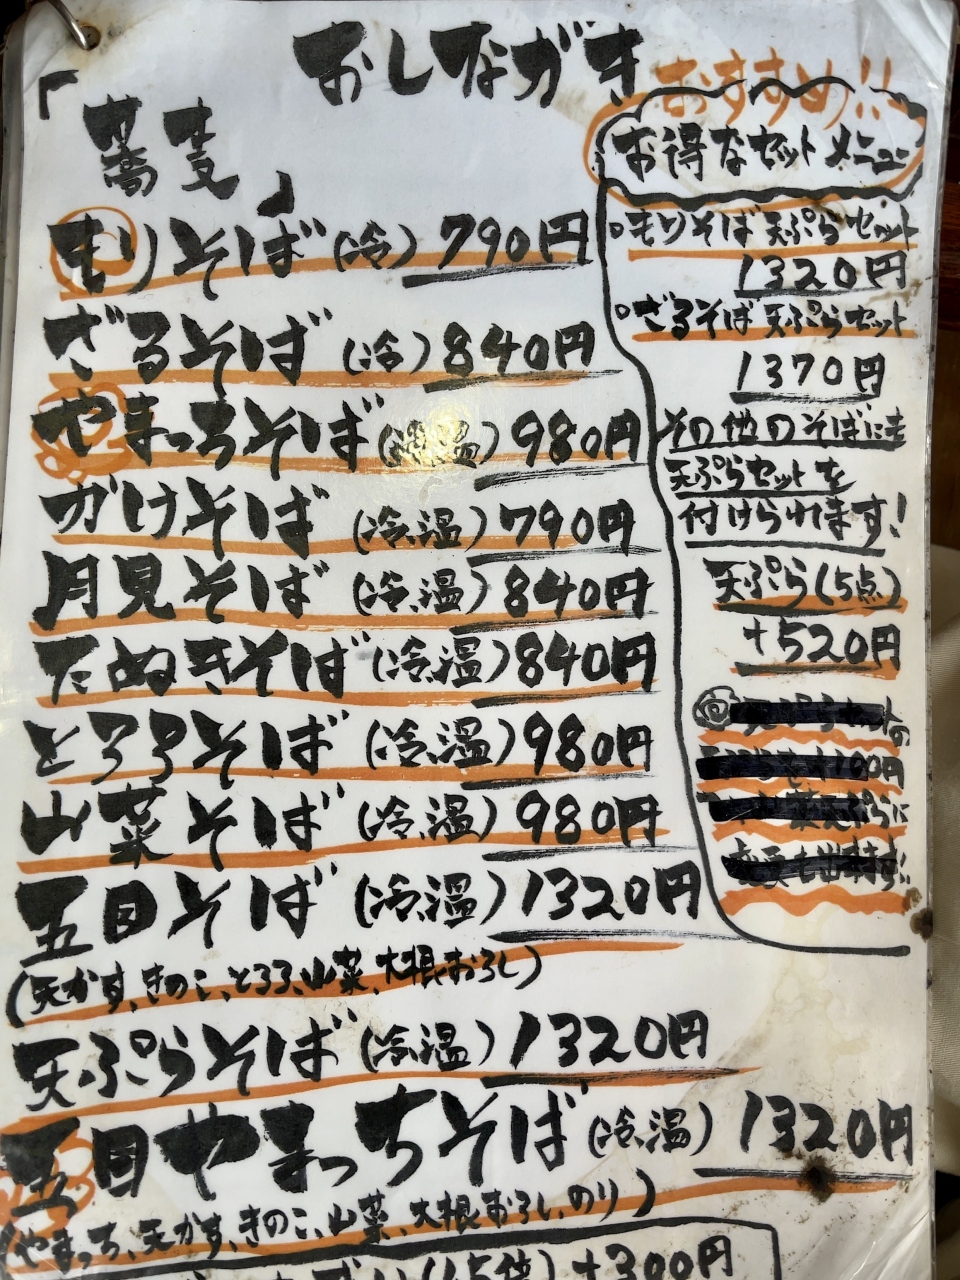 おしながき
「蕎麦」
もりそば(冷)790円
ざるそば(冷)840円
やまっちそば(冷、温)980円
かけそば(冷、温)790円
月見そば(冷、温)840円
たぬきそば(冷、温)840円
とろろそば(冷、温)980円
山菜そば(冷、温)980円
五目そば(冷、温)1320円
(天かす、きのこ、とろろ、山菜、大根おろし)
天ぷらそば(冷、温)1320円
五目やまっちそば(冷、温)1320円
(やまっち、天かす、きのこ、山菜、大根おろし、のり)
+300円
おすすめ!!
お得なセットメニュー
•もりそば天ぷらセット
1320円
•ざるそば天ぷらセット
1370円
その他のそばにも
天ぷらセットを
付けられます!
天ぷら(5点)
+520円